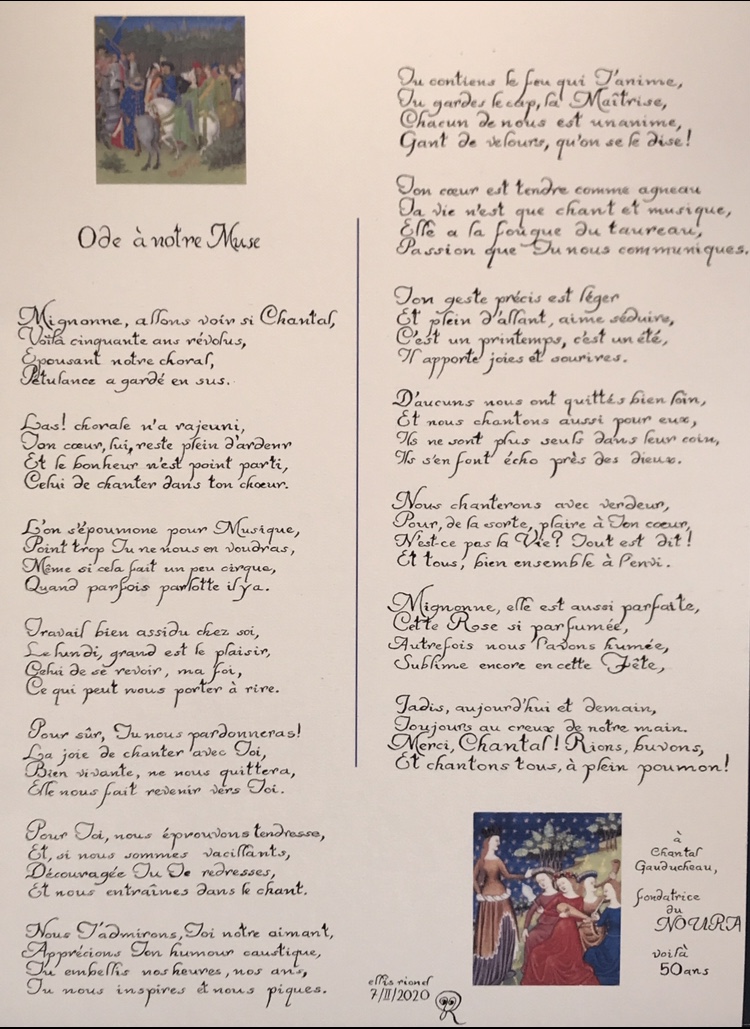 Ode à notre Muse
Mignonne, allons voir si Chantal,
Voilà cinquante ans révolus,
Epousant notre choral,
Pétulance a gardé en sus.
Las! chorale n'a rajeuni,
Ton cœur, lui, reste plein d'ardeur
Et le bonheur n'est point parti,
Celui de chanter dans ton chœur.
L'on s'époumone pour Musique,
Point trop Tu ne nous en voudras,
Même si cela fait un peu cirque,
Quand parfois parlotte il y a.
Travail bien assidu chez soi,
Le lundi, grand est le plaisir,
Celui de se revoir, ma foi,
Ce qui peut nous porter à rire.
Pour sûr, Tu nous pardonneras!
La joie de chanter avec Toi,
Bien vivante, ne nous quittera,
Elle nous fait revenir vers Toi.
Pour Toi, nous éprouvons tendresse,
Et, si nous sommes vacillants,
Découragée Tu Te redresses,
Et nous entraînes dans le chant.
Nous T'admirons, Toi notre aimant,
Apprécions Ton humour caustique,
Tu embellis nos heures, nos ans,
Tu nous inspires et nous piques.
Tu contiens le feu qui T'anime,
Tu gardes le cap, la Maîtrise,
Chacun de nous est unanime,
Gant de velours, qu'on se le dise!
Ton cœur est tendre comme agneau
Ta vie n'est que chant et musique,
Elle a la fougue du taureau,
Passion que Tu nous communiques.
Ton geste précis est léger
Et plein d'allant, aime séduire,
C'est un printemps, c'est un été,
Il apporte joies et sourires.
D'aucuns nous ont quittés bien loin,
Et nous chantons aussi pour eux,
Ils ne sont plus seuls dans leur coin,
Ils s'en font écho près des dieux.
Nous chanterons avec verdeur,
Pour, de la sorte, plaire à Ton cœur,
N'est-ce pas la Vie? Tout est dit!
Et tous, bien ensemble à l'envi.
Mignonne, elle est aussi parfaite,
Cette Rose si parfumée,
Autrefois nous l'avons humée,
Sublime encore en cette Fête,
Jadis, aujourd'hui et demain,
Toujours au creux de notre main.
Merci, Chantal! Rions, buvons,
Et chantons tous, à plein poumon!
à
Chantal
Gauducheau,
fondatrice
du
NOURA
voilà
50 ans
ellis rionel
7/II/2020